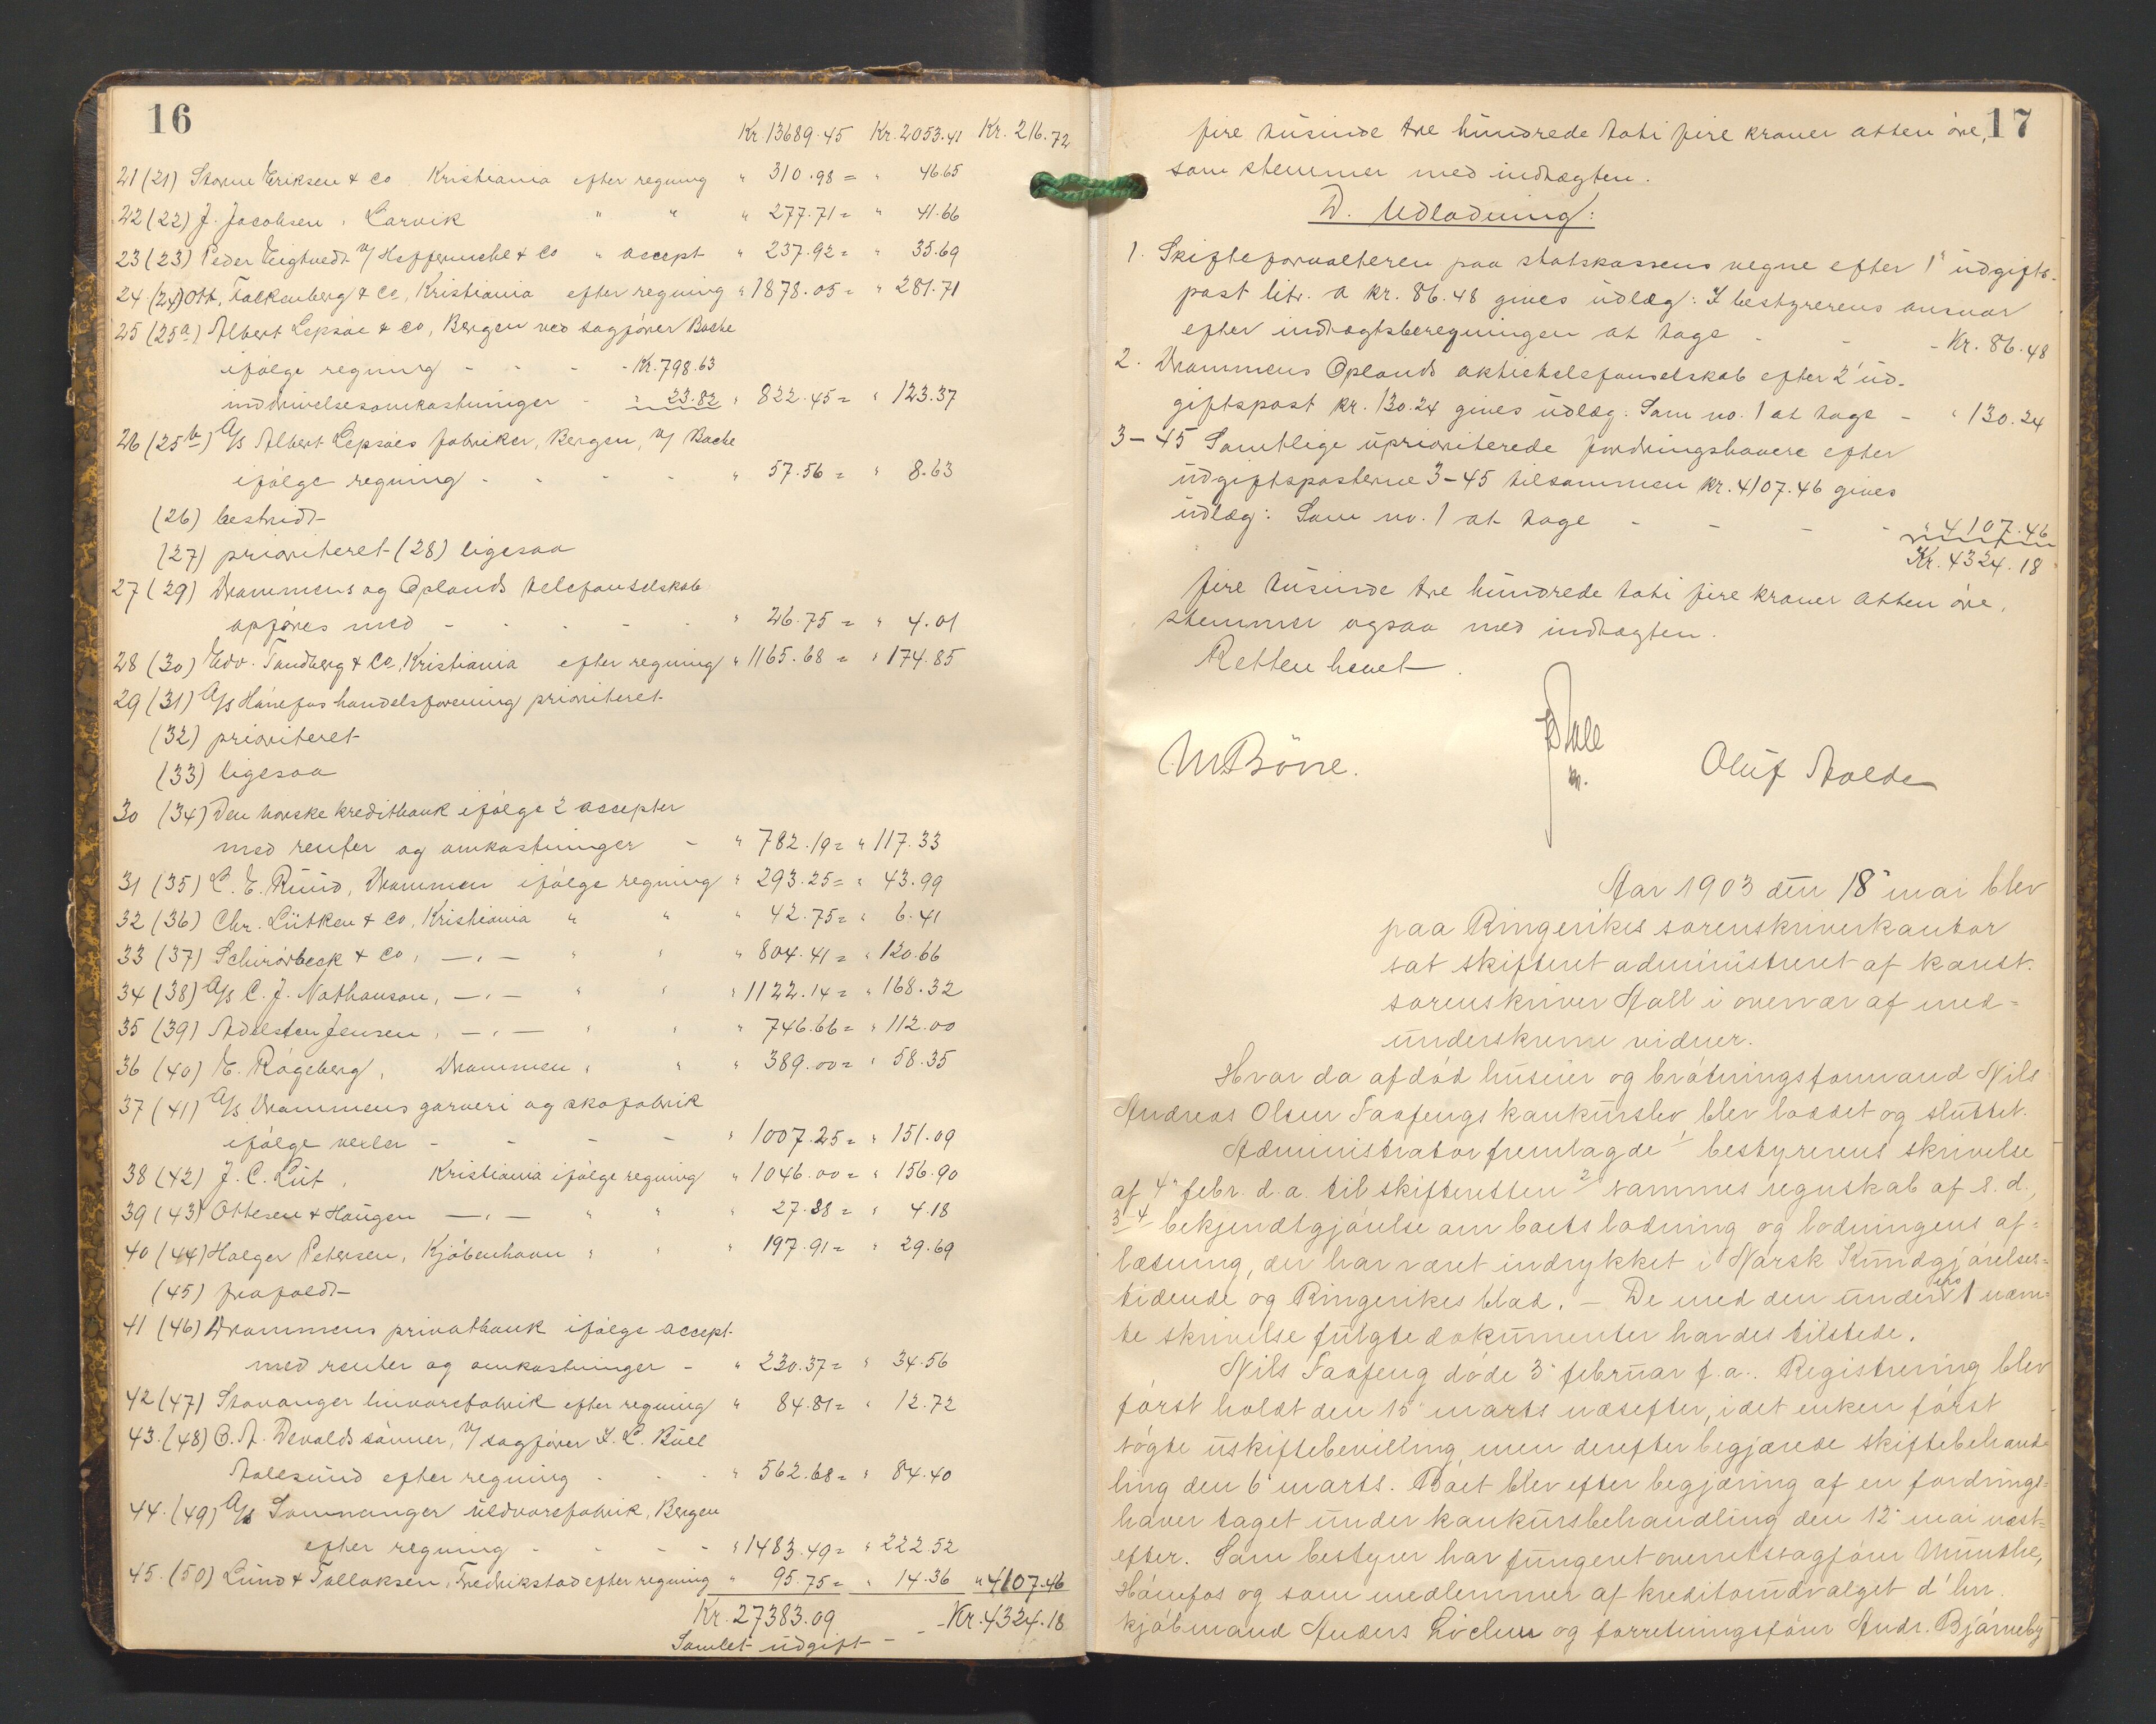 16
Kr. 13689.45 Kr. 2053.41 Kr. 216.72
21 (21) Storm Eriksen & Co Kristiania efter regning " 310.98 = " 46.65
22 (22) J. Jacobsen, Larvik " " " 277.71 = " 41.66
23 (23) Peder Eigtvedt v/ Heffermehl & Co " accept " 237.92 = " 35.69
24 (24) Ott. Falkenberg & Co, Kristiania efter regning " 1878.05 = " 281.71
25 (25a) Albert Lepsøe & Co, Bergen ved sagfører Bache
ifølge regning - - - - Kr. 798.63
inddrivelsesomkostninger - " 23.82 " 822.45 = " 123.37
26 (25b) A/S Albert Lepsøes fabriker, Bergen, v/ Bache
ifølge regning - - - - " 57.56 = " 8.63
(26) bestridt
(27) prioriteret (28) ligesaa
27 (29) Drammens og Oplands telefonselskab
opføres med - - - - - " 26.75 = " 4.01
28 (30) Edv. Tandberg & Co, Kristiania efter regning " 1165.68 = " 174.85
29 (31) A/S Hønefos handelsforening prioriteret
(32) prioriteret
(33) ligesaa
30 (34) Den norske kreditbank ifølge 2 accepter
med renter og omkostninger - " 782.19 = " 117.33
31 (35) L. E. Ruud, Drammen ifølge regning " 293.25 = " 43.99
32 (36) Chr. Lütken & Co, Kristiania " " " 42.75 = " 6.41
33 (37) Schiørbeck & Co, —"— " " " 804.41 = " 120.66
34 (38) A/S C. J. Nathanson, —"— " " " 1122.14 = " 168.32
35 (39) Adelsten Jensen, —"— " " " 746.66 = " 112.00
36 (40) E. Røgeberg, Drammen, " " " 389.00 = " 58.35
37 (41) A/S Drammens garveri og skofabrik
ifølge vexler - - - - " 1007.25 = " 151.09
38 (42) J. C. Lüt, Kristiania ifølge regning " 1046.00 = " 156.90
39 (43) Ottesen & Haugen —"— " " " 27.88 = " 4.18
40 (44) Holger Petersen, Kjøbenhavn " " " 197.91 = " 29.69
(45) frafaldt
41 (46) Drammens privatbank ifølge accept
med renter og omkostninger - " 230.37 = " 34.56
42 (47) Stavanger linvarefabrik efter regning " 84.81 = " 12.72
43. (48) O. A. Devolds sønner, v/ sagfører F. C. Büll
Aalesund efter regning - - - " 562.68 = " 84.40
44. (49) A/S Samnanger uldvarefabrik, Bergen
efter regning - - - - " 1483.49 = " 222.52
45. (50) Lund & Tollaksen, Fredrikstad efter regning " 95.75 = " 14.36 " 4107.46
Kr. 27383.09 - Kr. 4324.18
Samlet udgift - -
17
fire tusinde tre hundrede toti fire kroner atten øre,
som stemmer med indtægten.
D. Udlodning:
1. Skifteforvalteren paa statskassens vegne efter 1' udgifts-
post litr. a kr. 86.48 gives udlæg: I bestyrerens ansvar
efter indtægtsberegningen at tage - - - Kr. 86.48
2. Drammens Oplands aktietelefonselskab efter 2' ud-
giftspost kr. 130.24 gives udlæg: Som no. 1 at tage - " 130.24
3-45 Samtlige uprioriterede fordringshavere efter
udgiftsposterne 3-45 tilsammen kr. 4107.46 gives
udlæg: Som no. 1 at tage - - - - " 4107.46
Kr. 4324.18
fire tusinde tre hundrede toti fire kroner atten øre,
stemmer ogsaa med indtægten.
Retten hævet.
Oluf Molde
Aar 1903 den 18' mai blev
paa Ringerikes sorenskriverkontor
sat skifteret administreret af konst.
sorenskriver Hall i overvær af med=
underskrevne vidner.
Hvor da afdød huseier og brøtningsformand Nils
Andreas Olsen Faafengs konkursbo, blev loddet og sluttet.
Administrator fremlagde 1/ bestyrerens skrivelse
af 4' febr. d. a. til skifteretten 2/ sammes regnskab af s. d.,
3-4 bekjendtgjørelse om boets lodning og lodningens af=
læsning, der har været indrykket i Norsk Kundgjørelses=
tidende og Ringerikes blad. — De med den under eks 1 nævn=
te skrivelse fulgte dokumenter havdes tilstede.
Nils Faafeng døde 3' februar f. a.. Registrering blev
først holdt den 15' marts næstefter, idet enken først
søgte uskiftebevilling, men derefter begjærede skiftebehand=
ling den 6' marts. Boet blev efter begjæring af en fordrings=
haver taget under konkursbehandling den 12' mai næst=
efter. Som bestyrer har fungeret overretssagfører Munthe,
Hønefos og som medlemmer af kreditorudvalget d'hrr.
kjøbmand Anders og forretningsfører Andr. Bjørneby